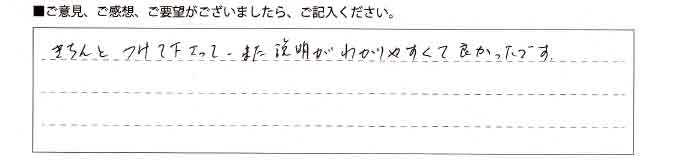 ■ご意見、ご感想、ご要望がございましたら、ご記入ください。
きちんと つけて下さって、また説明がわかりやすくて良かったです。